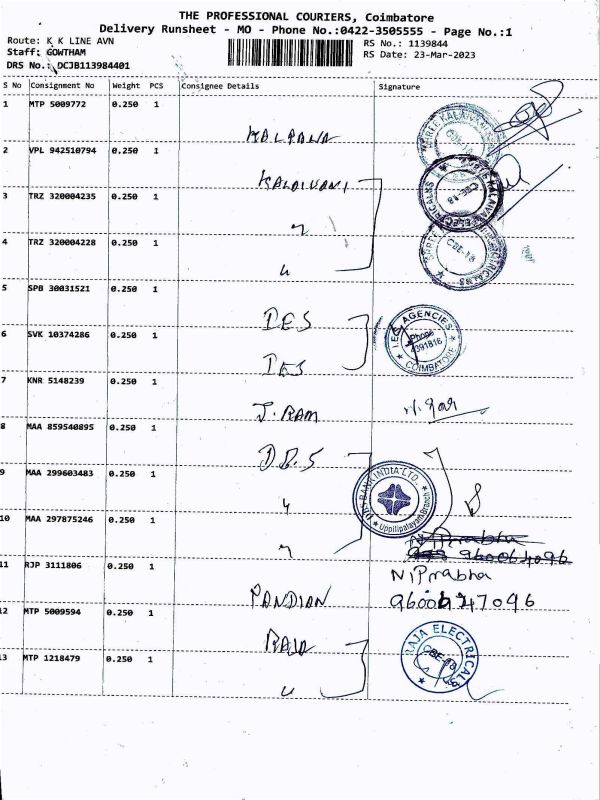 THE PROFESSIONAL COURIERS, Coimbatore
Delivery Runsheet - MO - Phone No.:0422-3505555 - Page No.:1
Route: K K LINE AVN
Staff: GOWTHAM
DRS No.: DCJB113984401
RS No.: 1139844
RS Date: 23-Mar-2023
S No Consignment No Weight PCS Consignee Details Signature
1 MTP 5009772 0.250 1
KALPANA
2 VPL 942510794 0.250 1
KALAIVANI
3 TRZ 320004235 0.250 1
"
4 TRZ 320004228 0.250 1
"
CBE-18
5 SPB 30031521 0.250 1
IES
I.E.S AGENCIES
Phone
4391816
COIMBATORE
6 SVK 10374286 0.250 1
IES
7 KNR 5148239 0.250 1
J. RAM
8 MAA 859540895 0.250 1
D.B.S
9 MAA 299603483 0.250 1
"
DBS BANK INDIA LTD.
Uppilipalayam Branch
10 MAA 297875246 0.250 1
"
11 RJP 3111806 0.250 1
PANDIAN
N. Prabha
12 MTP 5009594 0.250 1
RAJA
RAJA ELECTRICAL
CBE-18
13 MTP 1218479 0.250 1
"